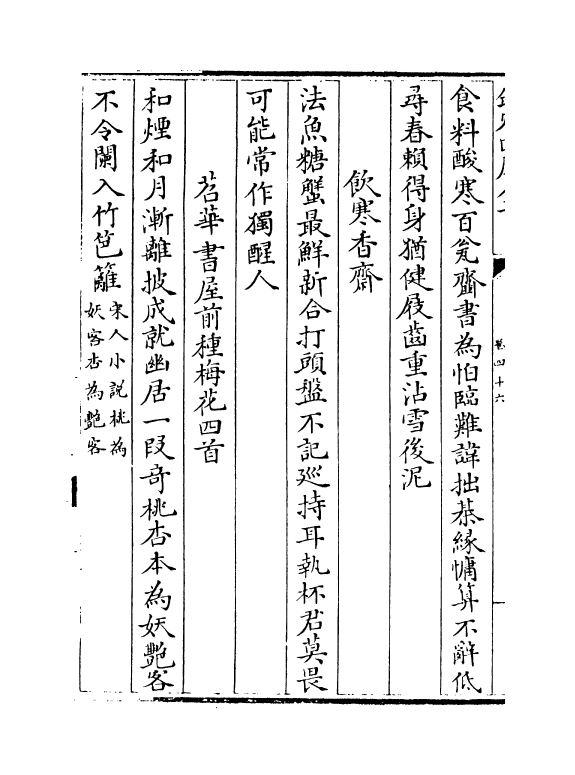 卷四十六
食料酸寒百瓮齏書為怕臨難諱拙棊緣慵算不辭低
尋春賴得身猶健屐齒重沾雪後泥
飲寒香齋
法魚糖蟹最鮮新合打頭盤不記巡持耳執杯君莫畏
可能常作獨醒人
苕華書屋前種梅花四首
和煙和月漸離披成就幽居一段奇桃杏本為妖艷客
不令闌入竹笆籬宋人小說桃為
妖客杏為艷客